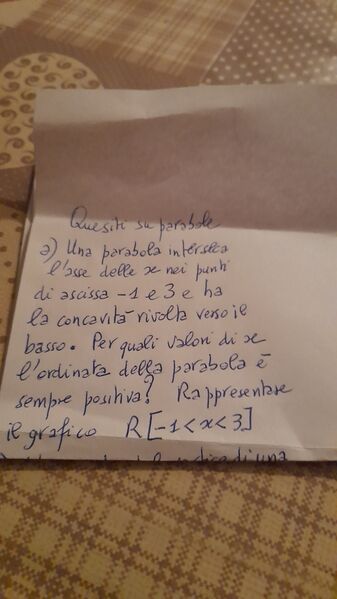 Quesiti su parabole
a) Una parabola interseca
l'asse delle x nei punti
di ascissa -1 e 3 e ha
la concavità rivolta verso il
basso. Per quali valori di x
l'ordinata della parabola è
sempre positiva? Rappresentare
il grafico R[-1<x<3]
di una